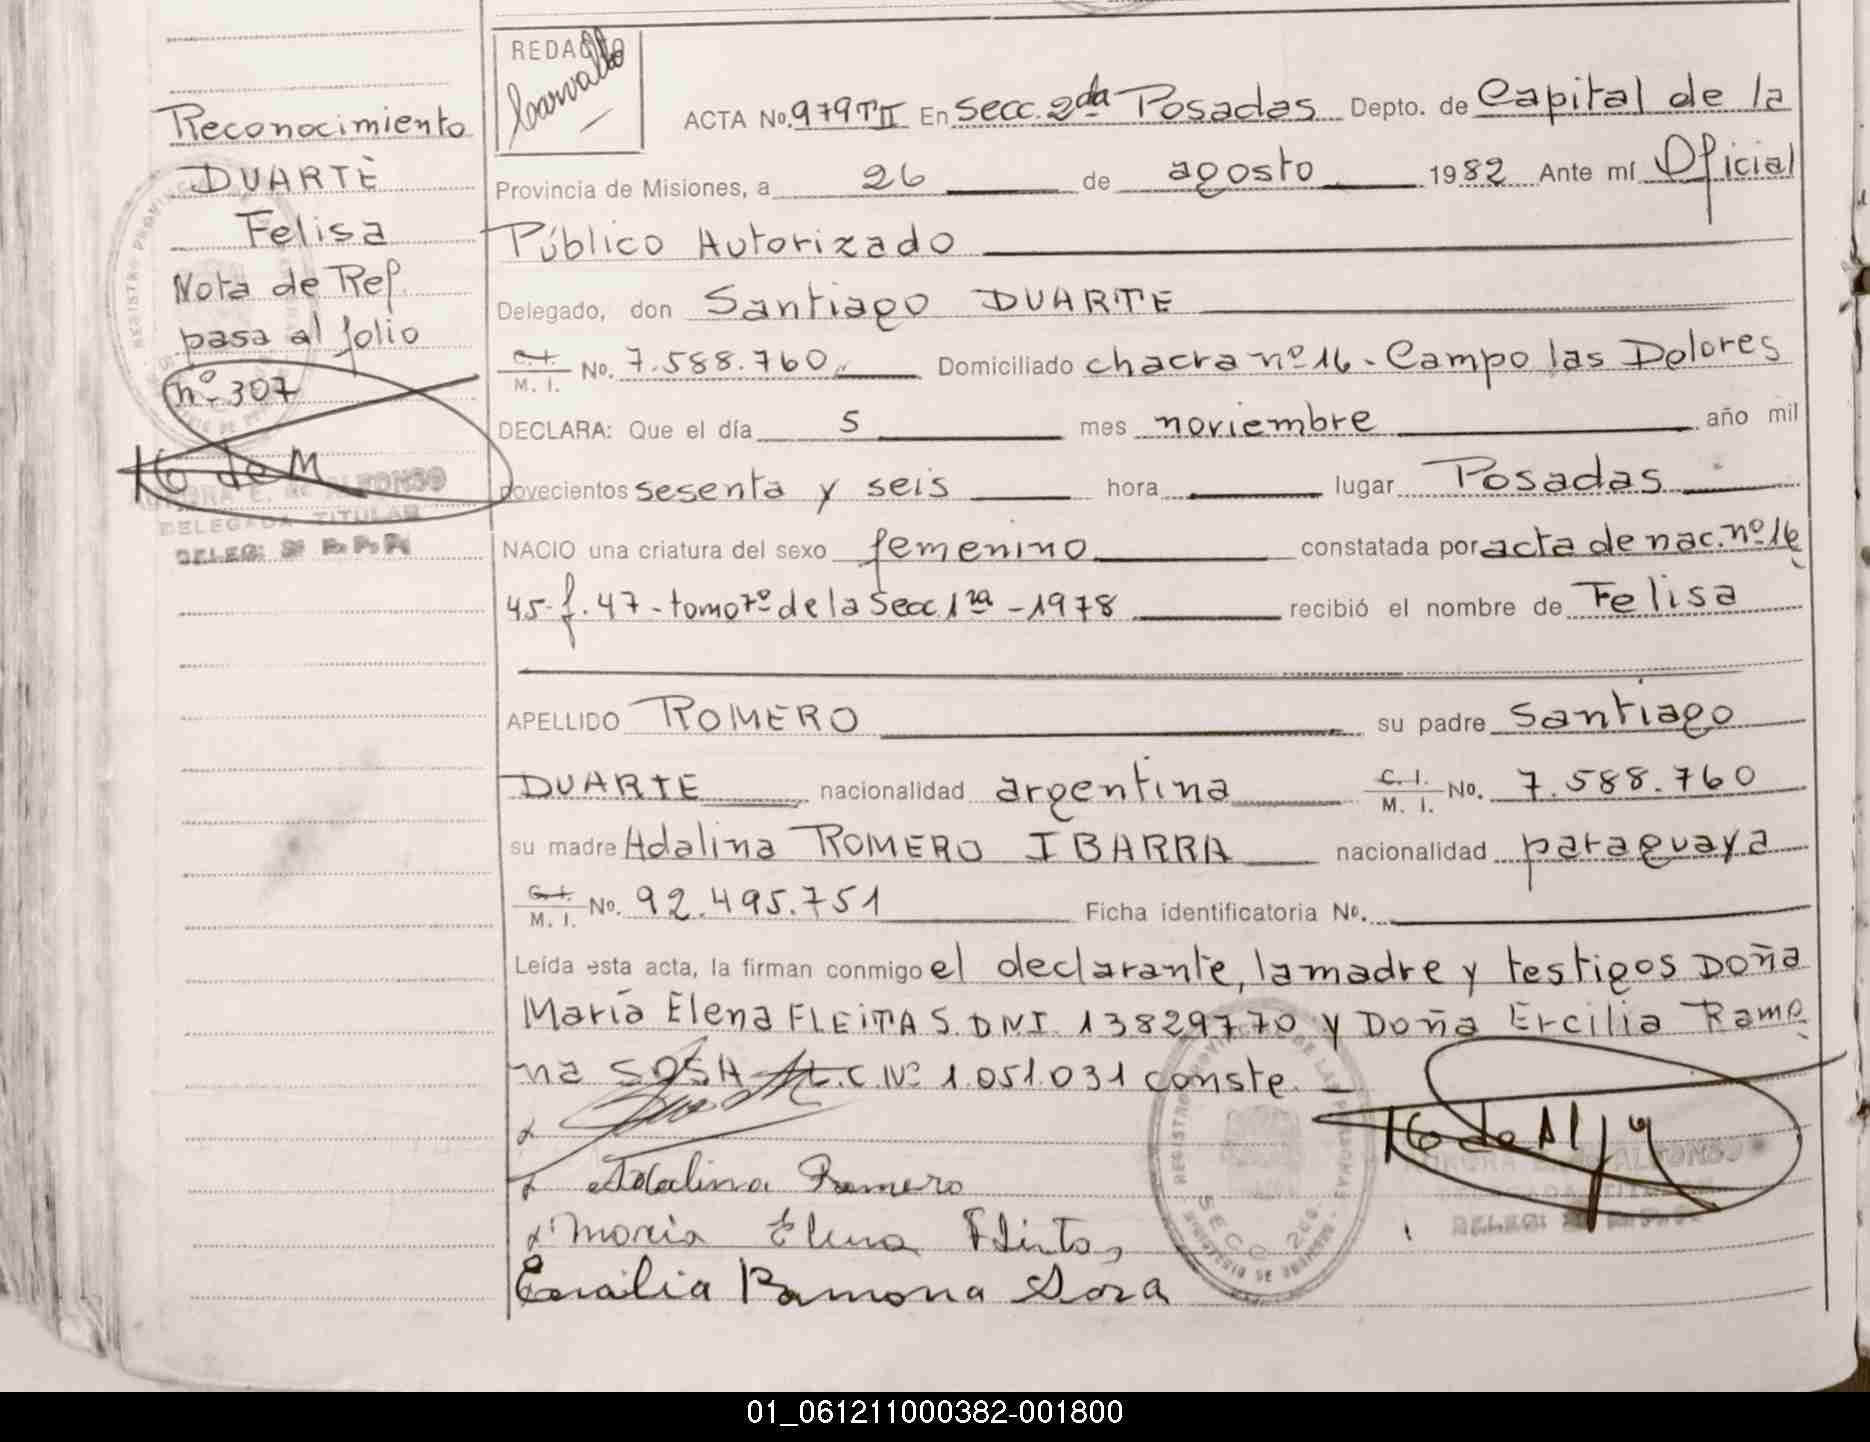 Reconocimiento
DUARTE
Felisa
Nota de Ref.
pasa al folio
nº 307
DELEGADA TITULAR
REDACTO
Carvallo
ACTA No. 979 TII En Secc. 2da Posadas Depto. de Capital de la
Provincia de Misiones, a 26 de agosto 1982 Ante mí Oficial
Público Autorizado
Delegado, don Santiago DUARTE
C. I. M. I. No. 7.588.760 Domiciliado chacra nº 16 - Campo las Dolores
DECLARA: Que el día 5 mes noviembre año mil
novecientos sesenta y seis hora lugar Posadas
NACIO una criatura del sexo femenino constatada por acta de nac. nº 16
45 - f. 47 - tomo 7º de la Secc 1ra - 1978 recibió el nombre de Felisa
APELLIDO ROMERO su padre Santiago
DUARTE nacionalidad argentina C. I. M. I. No. 7.588.760
su madre Adalina ROMERO IBARRA nacionalidad paraguaya
C. I. M. I. No. 92.495.751 Ficha identificatoria No.
Leída esta acta, la firman conmigo el declarante, la madre y testigos Doña
María Elena FLEITAS. DNI 13829770 y Doña Ercilia Ramo
na SOSA L.C. Nº 1.051.031 conste. —
Adalina Romero
Maria Elena
Ercilia Ramona Sosa
SECC 2da.
01_061211000382-001800